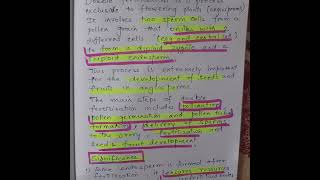 Double fertilisation is a process
exclusive to flowering plants (angiosperms)
It involves two sperm cells from a
pollen grain that unites with 2
different cells (egg and central cell)
to form a diploid zygote and a
triploid endosperm.
This process is extremely important
for the development of seeds and
fruits in angiosperms.
The main steps of double
fertilisation includes pollination,
pollen germination and pollen tube
formation, delivery of sperms
to the ovary, fertilisation and
seed & fruit development.
Significance
endosperm is formed after
fertilisation, it ensures resources